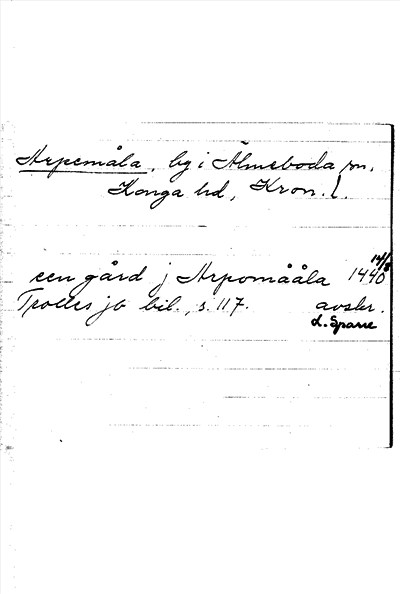 Arpemåla, by i Älmeboda sn.
Konga hd, Kron. l.
een gård j Arpomååla 1440 14/8
Trolles jb bil., s. 117. avskr.
L. Sparre